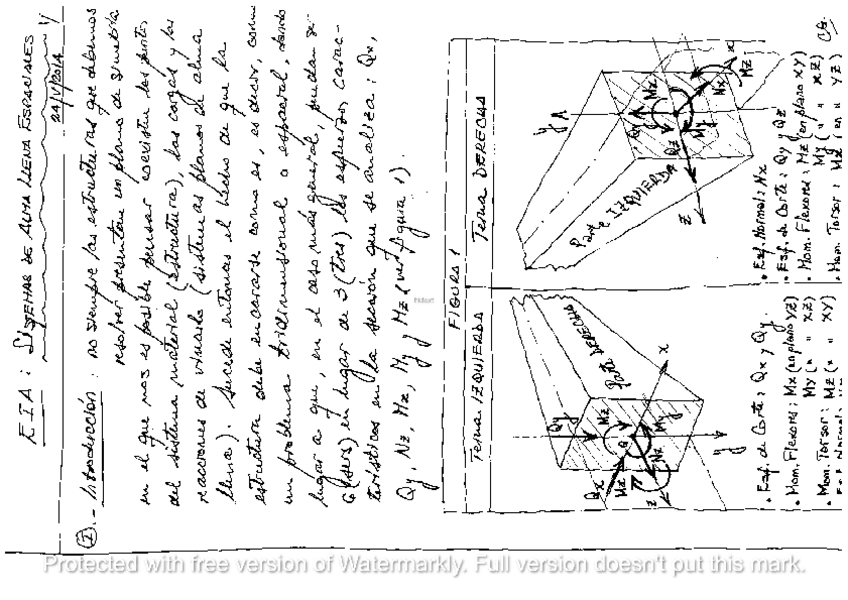 EIA: SISTEMAS DE ALMA LLENA ESPACIALES
1/
29/V/2014
I.- Introducción: no siempre las estructuras que debemos
resolver presentan un plano de simetría
en el que nos es posible pensar coexisten los puntos
del sistema material (estructura), las cargas y las
reacciones de vínculo (sistemas planos de alma
llena). Sucede entonces el hecho de que la
estructura debe encararse como es, es decir, como
un problema tridimensional o espacial, dando
lugar a que, en el caso más general, puedan ser
6 (seis) en lugar de 3 (tres) los esfuerzos carac-
terísticos en la sección que se analiza: Qx,
Qy, Nz, Mx, My y Mz (ver figura 1).
FIGURA 1
Terna IZQUIERDA
Parte DERECHA
Qy
Mz
Qx
Mx
My
Nz
x
y
z
• Esf. de Corte: Qx y Qy.
• Mom. Flexores: Mx (en plano YZ)
My (" " XZ)
• Mom. Torsor: Mz (" " XY)
Terna DERECHA
Parte IZQUIERDA
y
Qy
Mx
Qz
My
Nx
Mz
x
z
CG.
• Esf. Normal: Nx
• Esf. de Corte: Qy y Qz
• Mom. Flexores: Mz (en plano XY)
My (" " XZ)
• Mom. Torsor: Mx (en " YZ)
hidden
Protected with free version of Watermarkly. Full version doesn't put this mark.